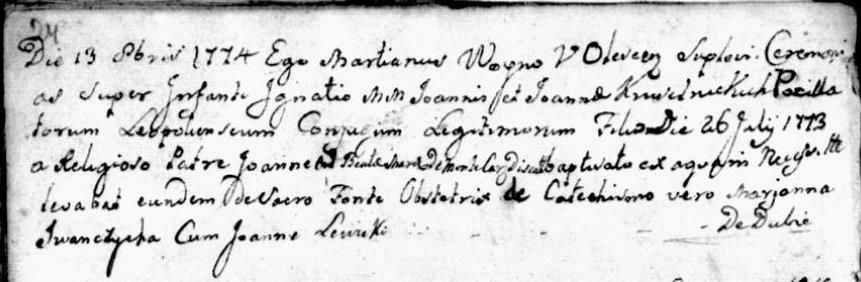 24
Die 13 8bris 1774 Ego Martianus Wogno V Olevcen Suplevi Ceremoni
as super Infante Ignatio MM Joannis et Joannæ Pocilla
torum Leopoliensium Conjugum Legitimorum Filio Die 26 Julij 1773
a Religioso Patre Joanne Baptisato ex aqua in Necessitte
levabat eundem De Sacro Fonte Obstetrix de Catechismo vero Marjanna
Iwanczycka Cum Joanne Levicki - - - - De Dubie